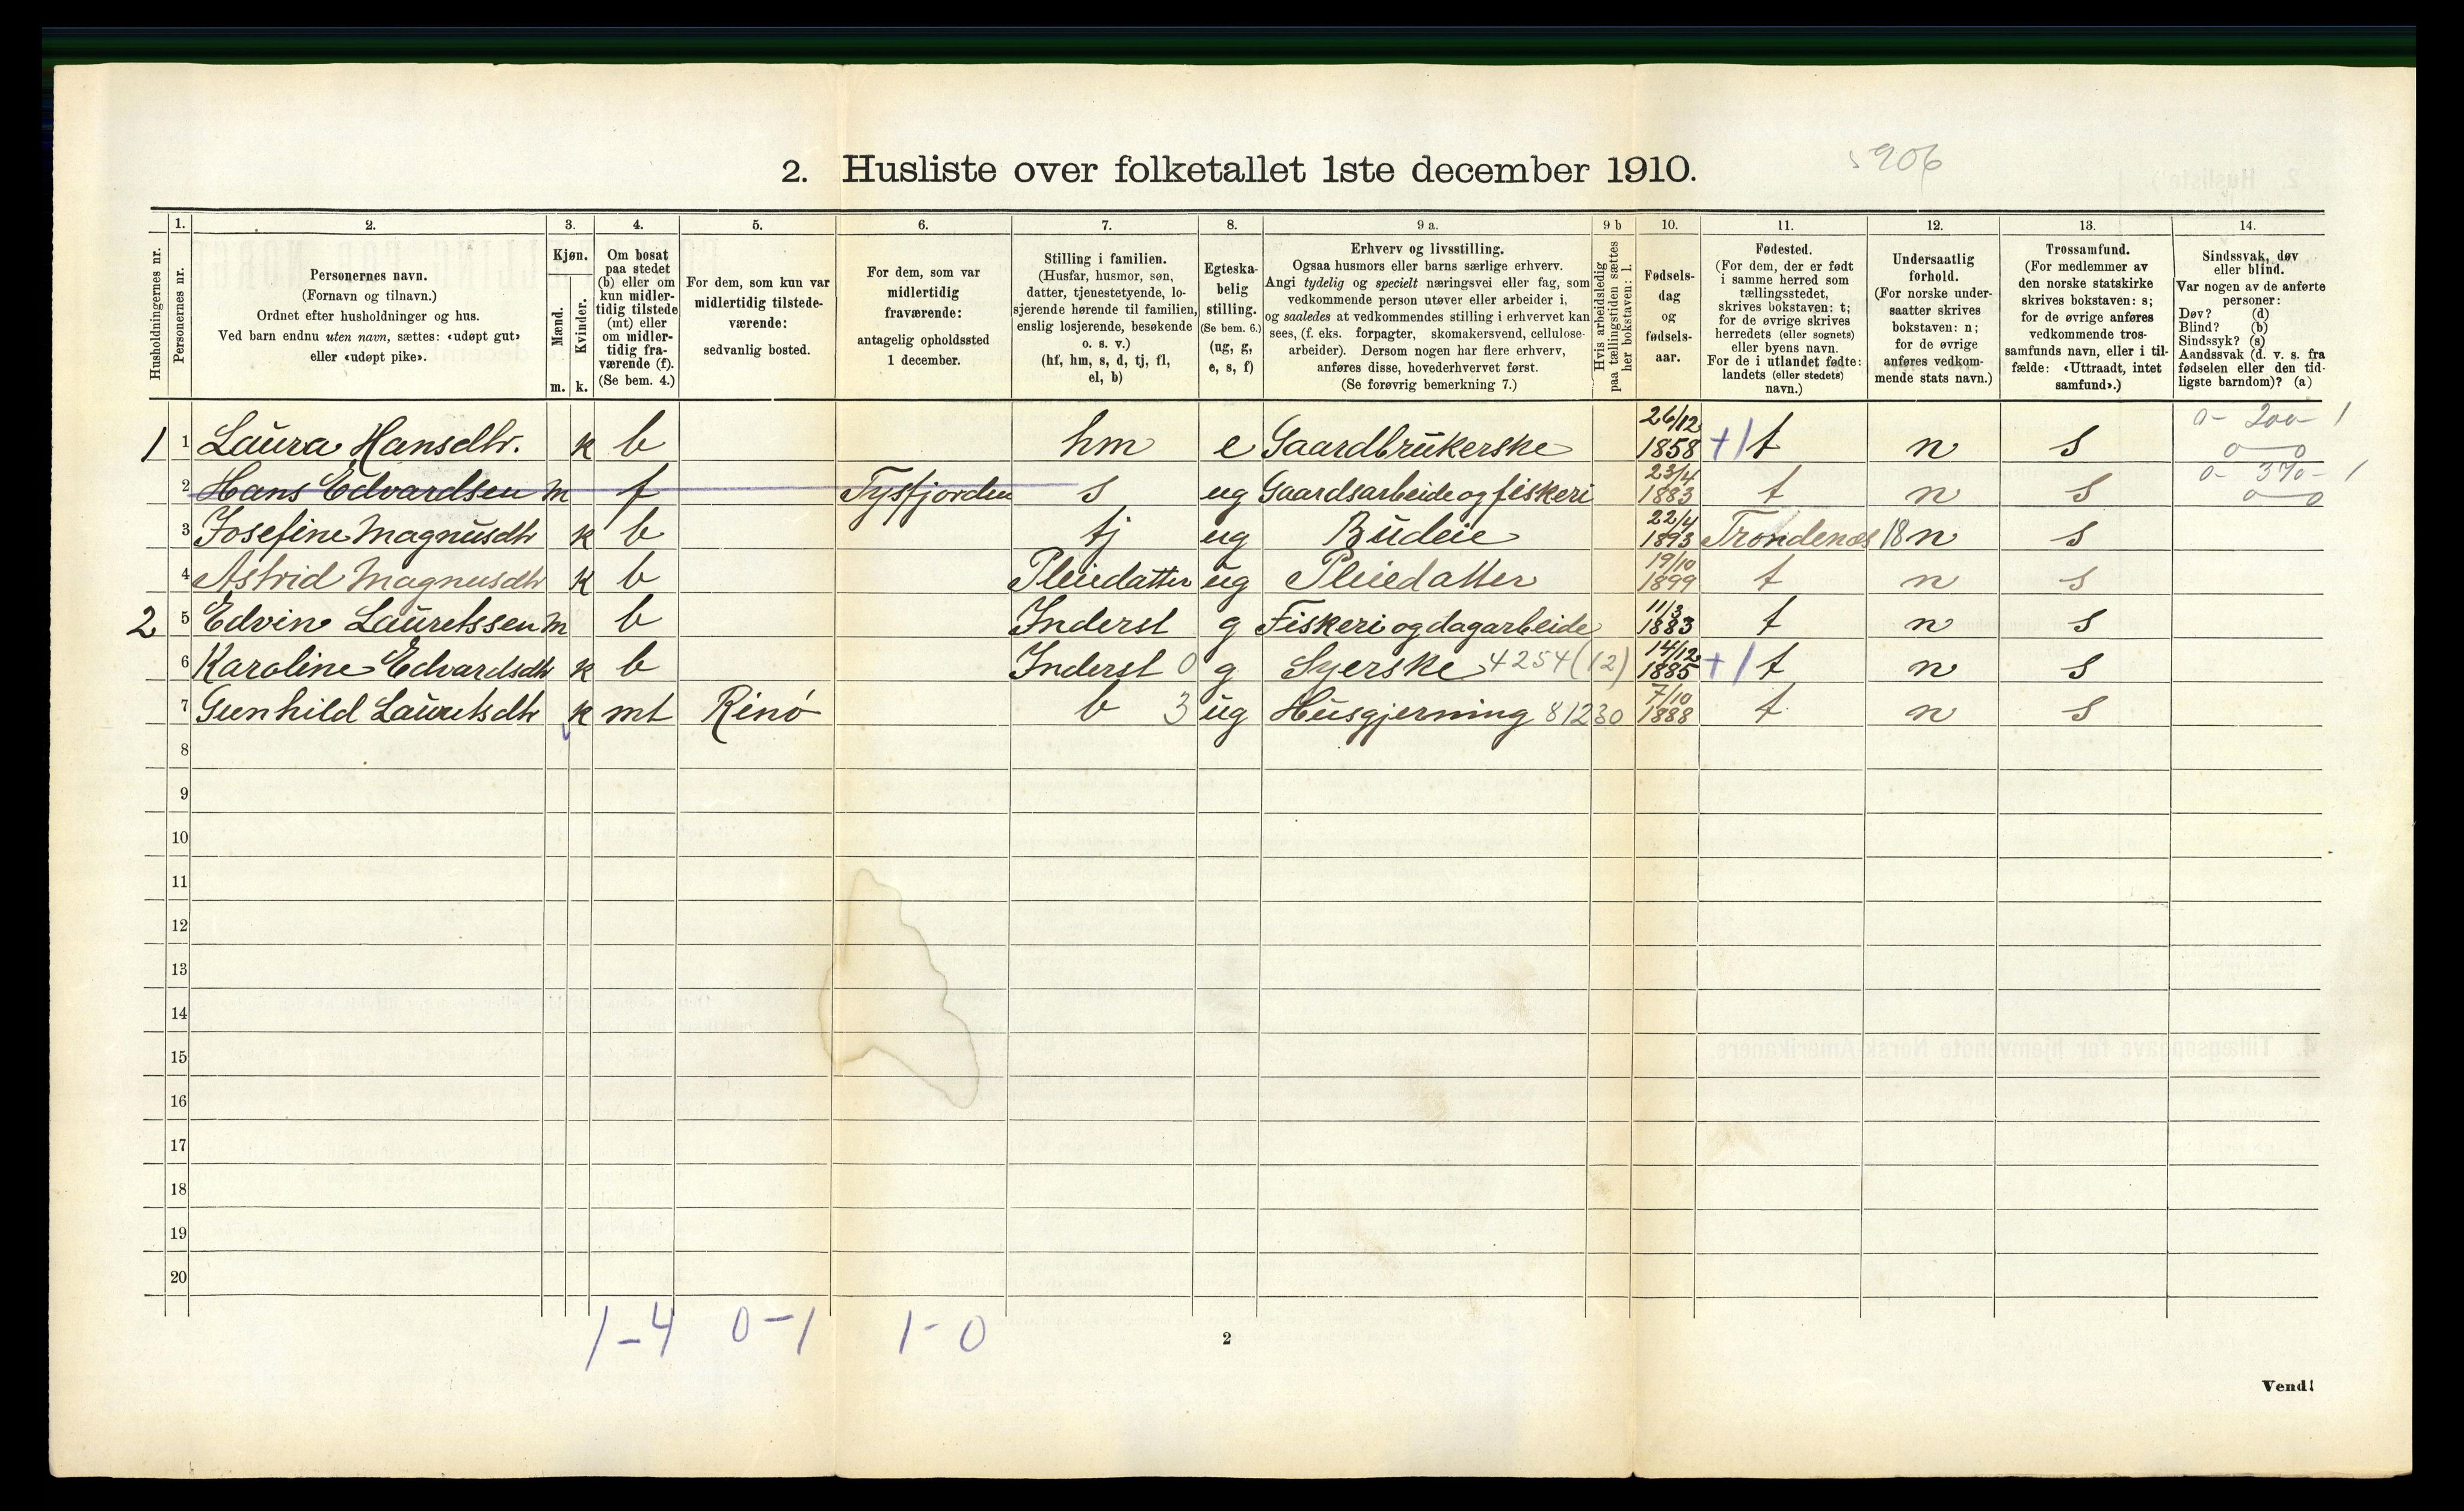 2. Husliste over folketallet 1ste december 1910.
5906
Husholdningernes nr.
1. Personernes nr.
2. Personernes navn.
(Fornavn og tilnavn.)
Ordnet efter husholdninger og hus.
Ved barn endnu uten navn, sættes: «udøpt gut»
eller «udøpt pike».
3. Kjøn.
Mænd. Kvinder.
m. k.
4. Om bosat
paa stedet
(b) eller om
kun midler-
tidig tilstede
(mt) eller
om midler-
tidig fra-
værende (f).
(Se bem. 4.)
5. For dem, som kun var
midlertidig tilstede-
værende:
sedvanlig bosted.
6. For dem, som var
midlertidig
fraværende:
antagelig opholdssted
1 december.
7. Stilling i familien.
(Husfar, husmor, søn,
datter, tjenestetyende, lo-
sjerende hørende til familien,
enslig losjerende, besøkende
o. s. v.)
(hf, hm, s, d, tj, fl,
el, b)
8. Egteska-
belig
stilling.
(Se bem. 6.)
(ug, g,
e, s, f)
9 a. Erhverv og livsstilling.
Ogsaa husmors eller barns særlige erhverv.
Angi tydelig og specielt næringsvei eller fag, som
vedkommende person utøver eller arbeider i,
og saaledes at vedkommendes stilling i erhvervet kan
sees, (f. eks. forpagter, skomakersvend, cellulose-
arbeider). Dersom nogen har flere erhverv,
anføres disse, hovederhvervet først.
(Se forøvrig bemerkning 7.)
9 b Hvis arbeidsledig
paa tællingstiden sættes
her bokstaven: l.
10. Fødsels-
dag
og
fødsels-
aar.
11. Fødested.
(For dem, der er født
i samme herred som
tællingsstedet,
skrives bokstaven: t;
for de øvrige skrives
herredets (eller sognets)
eller byens navn.
For de i utlandet fødte:
landets (eller stedets)
navn.)
12. Undersaatlig
forhold.
(For norske under-
saatter skrives
bokstaven: n;
for de øvrige
anføres vedkom-
mende stats navn.)
13. Trossamfund.
(For medlemmer av
den norske statskirke
skrives bokstaven: s;
for de øvrige anføres
vedkommende tros-
samfunds navn, eller i til-
fælde: «Uttraadt, intet
samfund».)
14. Sindssvak, døv
eller blind.
Var nogen av de anførte
personer:
Døv? (d)
Blind? (b)
Sindssyk? (s)
Aandssvak (d. v. s. fra
fødselen eller den tid-
ligste barndom)? (a)
1 1 Laura Hansdtr. k b hm e Gaardbrukerske 26/12 1858 +1 t n s 0- 200- 1 0-0
2 Hans Edvardsen m f Tysfjorden s ug Gaardsarbeide og fiskeri 23/4 1883 t n s 0- 370- 1 0-0
3 Josefine Magnusdtr k b tj ug Budeie 22/4 1893 Trondenæs 18 n s
4 Astrid Magnusdtr k b Pleiedatter ug Pleiedatter 19/10 1899 t n s
2 5 Edvin Lauretssen m b Inderst g Fiskeri og dagarbeide 11/3 1883 t n s
6 Karoline Edvardsdtr k b Inderst 0 g Syerske 4254 (12) 14/12 1885 +1 t n s
7 Gunhild Lauretsdtr k mt Rinø b 3 ug Husgjerning 81230 7/10 1888 t n s
8
9
10
11
12
13
14
15
16
17
18
19
20
1-4 0-1 1-0
2
Vend!